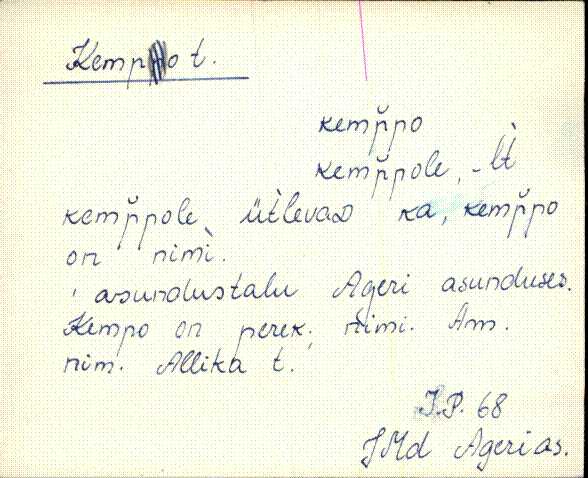 Kempo t.
kemp̆po
kemp̆pole, -lt
kemp̆pole ütlevaD ka, kemp̆po
on nimi.
'asundustalu Ageri asunduses.
Kempo on perek. nimi. Am.
nim. Allika t.
I.P. 68
JMd Ageri as.